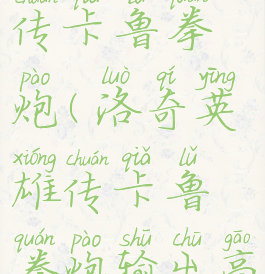 chuán qiǎ lǔ quán
传卡鲁拳
pào luò qí yīng
炮(洛奇英
xióng chuán qiǎ lǔ
雄传卡鲁
quán pào shū chū gāo
拳炮输出高